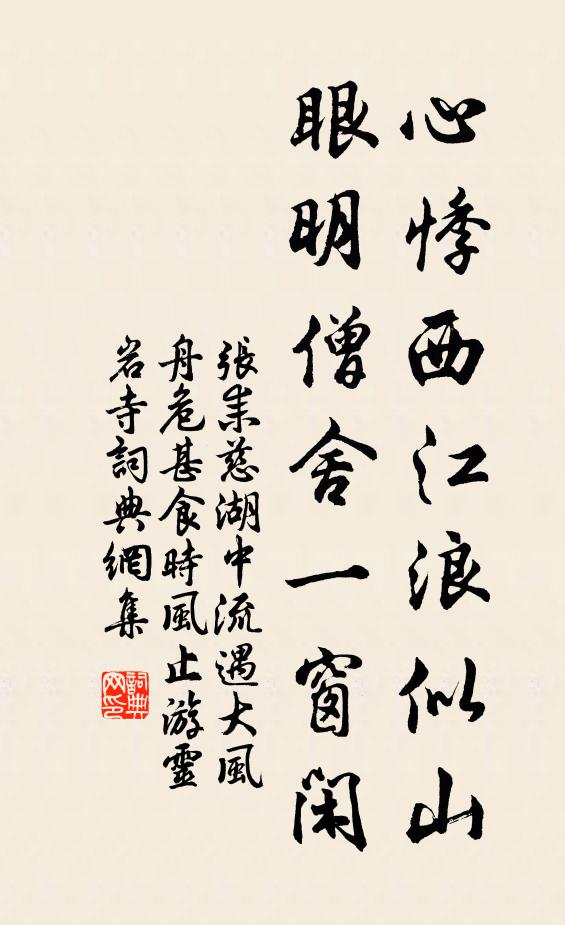 心悸西江浪似山
眼明僧舍一窗閑
張耒慈湖中流遇大風
舟危甚食時風止游靈
岩寺詞典網集
詞典
网印